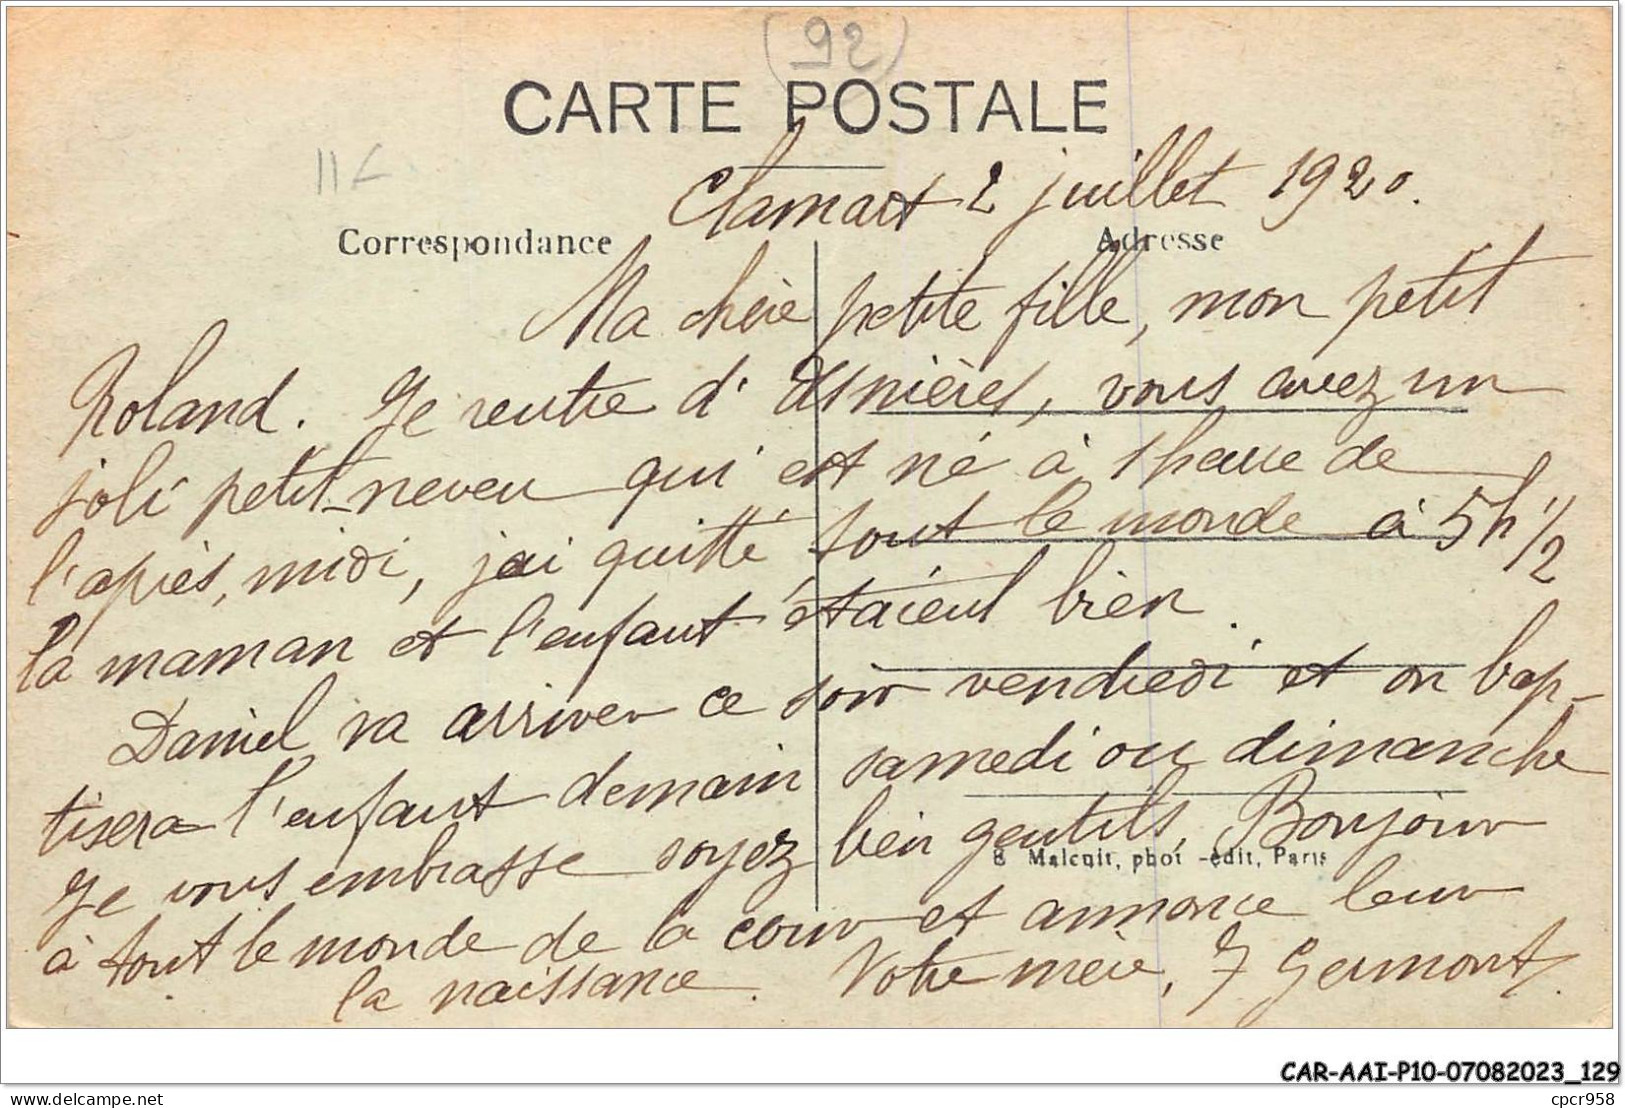 (92)
CARTE POSTALE
Clamart 2 juillet 1920.
Correspondance
Adresse
Ma chère petite fille, mon petit
Roland. Je rentre d'Asnières, vous avez un
joli petit-neveu qui est né à 1 heure de
l'après, midi, j'ai quitté tout le monde à 5h 1/2
la maman et l'enfant étaient bien.
Daniel va arriver ce soir vendredi et on bap-
tisera l'enfant demain samedi ou dimanche
Je vous embrasse soyez bien gentils, Bonjour
Malcuit, phot-édit, Paris
à tout le monde de la cour et annonce leur
la naissance. Votre mère, J Germont.
CAR-AAI-P10-07082023_129
delcampe.net
cpcr958